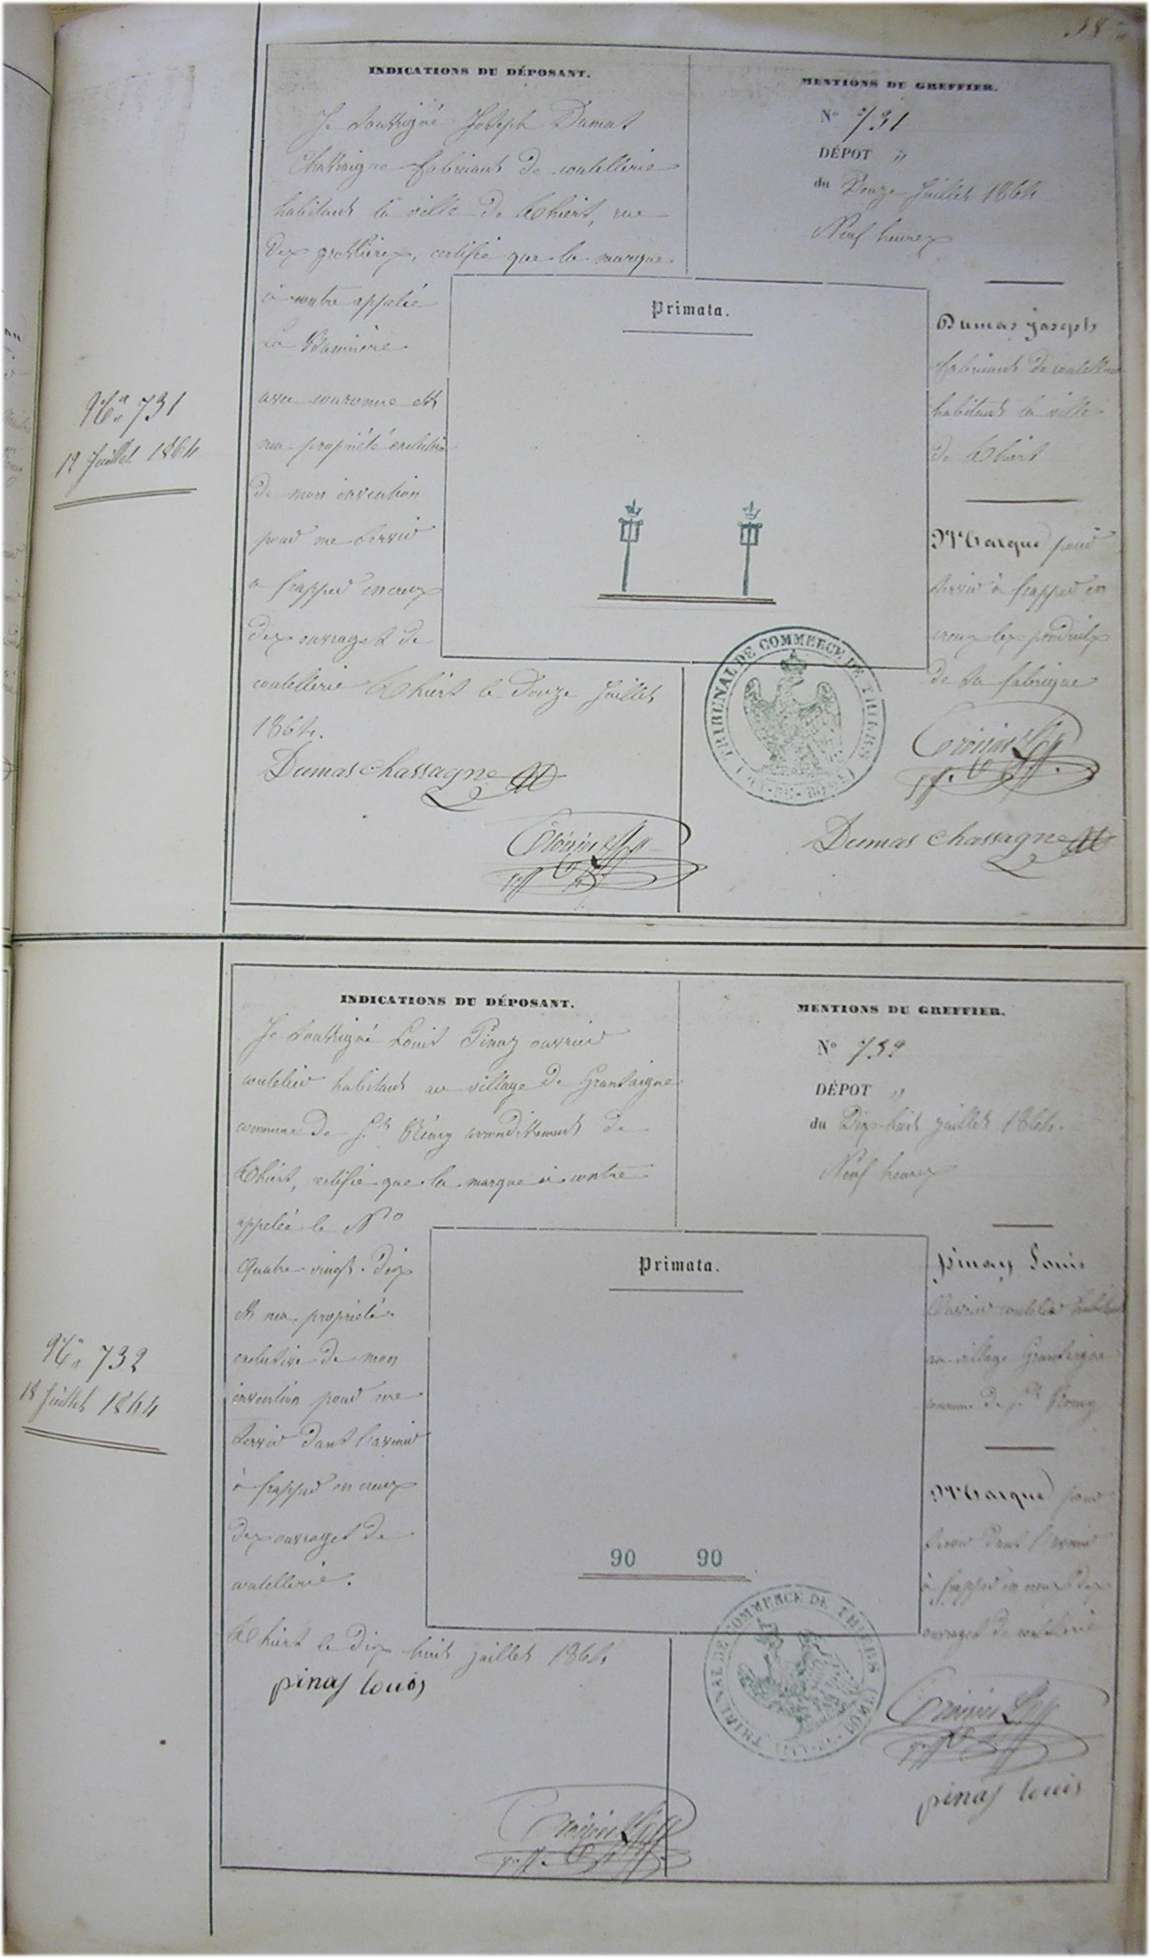 INDICATIONS DU DÉPOSANT.
Je soussigné Joseph Dumas
Chassaigne fabricant de coutellerie
habitant la ville de Thiers, rue
des grollières, certifie que la marque
à contre appelée
La
avec couronne est
ma propriété exclusive
de mon invention
pour me servir
à frapper en creux
des ouvrages de
coutellerie Thiers le Douze Juillet
1864.
Dumas chassagne
MENTIONS DU GREFFIER.
N° 731
DÉPOT "
du Douze Juillet 1864
Neuf heures
Primata.
Dumas joseph
fabricant de coutellerie
habitant la ville
de Thiers
Marque pour
servir à frapper en
creux les produits
de sa fabrique
TRIBUNAL DE COMMERCE DE THIERS
Dumas chassagne
N° 731
12 Juillet 1864
INDICATIONS DU DÉPOSANT.
Je soussigné Louis Pinay ouvrier
coutelier habitant au village de Gransaigne
commune de St Rémy arrondissement de
Thiers, certifie que la marque à contre
appelée le N°
Quatre-vingt-dix
est ma propriété
exclusive de mon
invention pour me
servir dans l'avenir
à frapper en creux
des ouvrages de
coutellerie.
Thiers le Dix huit juillet 1864
pinay louis
MENTIONS DU GREFFIER.
N° 732
DÉPOT "
du Dix huit juillet 1864.
Neuf heures
Primata.
90 90
pinay Louis
Ouvrier coutelier habitant
au village Gransaigne
commune de St Rémy
Marque pour
servir dans l'avenir
à frapper en creux des
ouvrages de coutellerie
TRIBUNAL DE COMMERCE DE THIERS
pinay louis
N° 732
18 Juillet 1864